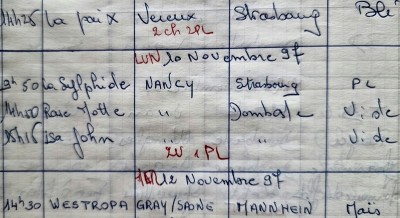 11h25 La paix Vereux Strasbourg Blé
2 ch 2PL
LUN 10 Novembre 97
9h50 La Sylphide NANCY Strasbourg PL
14h00 Motte " Dombasle Vide
15h15 Isa John " " Vide
2V 1 PL
12 Novembre 97
14h30 WESTROPA GRAY/SAONE MANNHEIN Maïs